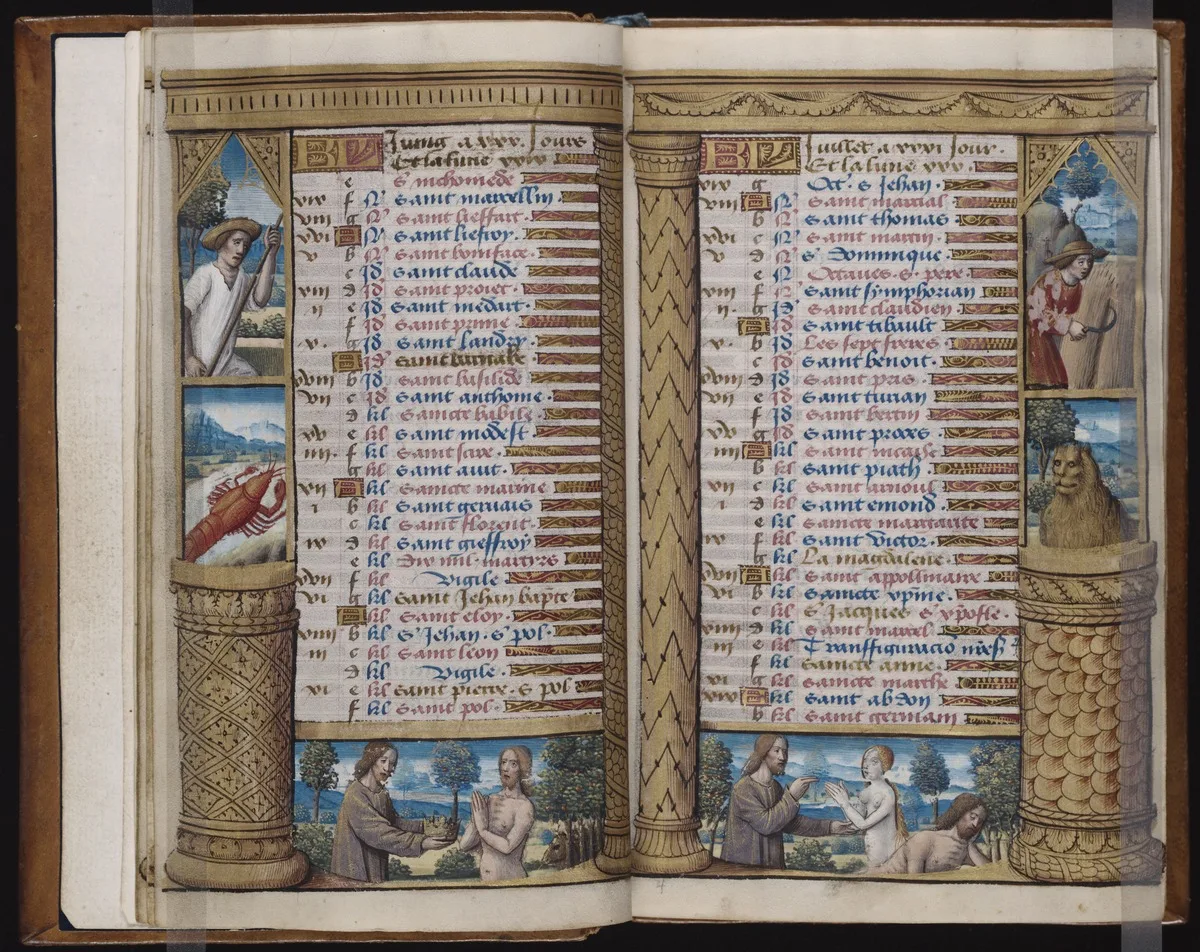 Juing a xxx. Jours
Et la lune xxix
e s' nichomede
xix f N Saint marcellin
viii g N Saint lieffart.
xvi A N Saint liefroy.
v b N Saint boniface.
c Id Saint claude
xiii d Id Saint
ii e Id Saint medart.
f Id Saint prime
x g Id Saint landry
A Id Saint barnabe
xviii b Id Saint basilide
vii c Id Saint anthoine
d kl Saincte
xv e kl Saint modest.
iiii f kl Saint
g kl Saint auit.
xii A kl Saincte marine
i b kl Saint geruais
c kl Saint florent.
ix d kl Saint gieffroy
e kl Dix mil martyrs
xvii f kl Vigile.
vi g kl Saint Jehan bapte
A kl Saint eloy.
xiiii b kl S' Jehan. s' pol.
iii c kl Saint leon
d kl Vigile.
xi e kl Saint pierre. s' pol
f kl Saint pol.
Juillet a xxxi jour.
Et la lune xxx.
xix g Oct. s' Jehan.
viii A N Saint marcial
b N Saint thomas
xvi c N Saint martin.
v d N s' Dominique.
e N Octaues. s. pere
xiii f N Saint symphorian
ii g Id Saint claudien
A Id Saint tibault
x b Id Les sept freres
c Id Saint benoit.
xviii d Id Saint
vii e Id Saint turian
f Id Saint bertin
xv g Id Saint
iiii A kl Saint nicaise
b kl Saint piath
xii c kl Saint arnoul
i d kl Saint emond.
e kl Saincte marguerite
ix f kl Saint Victor.
g kl La magdalene.
xvii A kl Saint appollinaire
vi b kl Saincte xpine.
c kl S' Jacques s' xpofle
xiiii d kl Saint marcel
iii e kl Transffiguracio nres'
f kl Saincte anne.
xi g kl Saincte marthe
xix A kl Saint abdon
b kl Saint germain